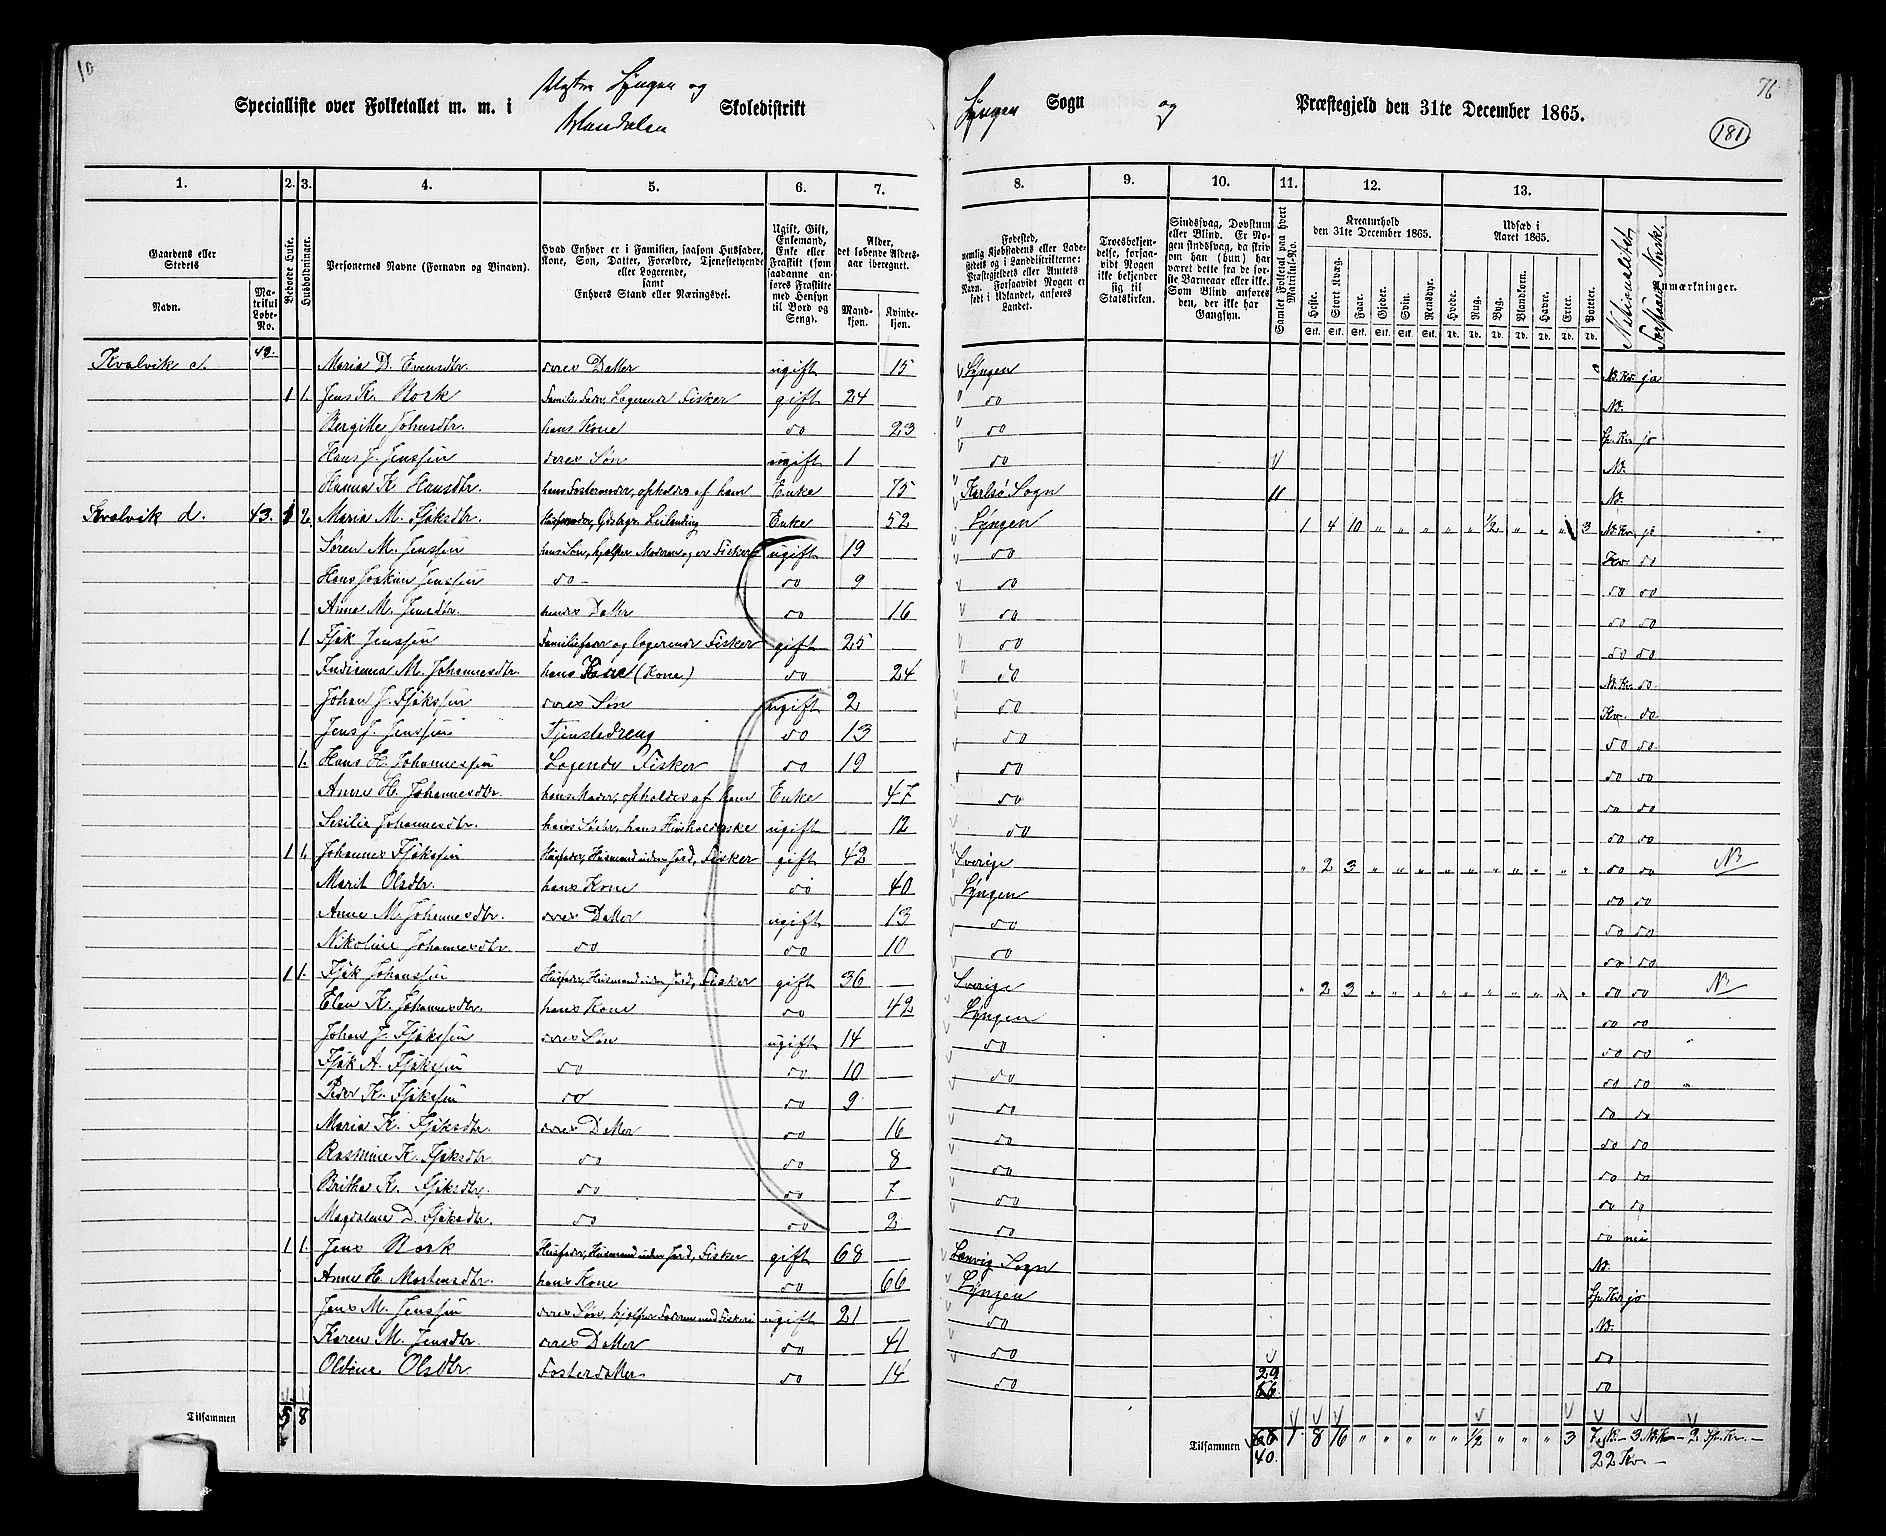 10
Specialliste over Folketallet m. m. i Lyngen og Skoledistrikt
Lyngen Sogn og Præstegjeld den 31te December 1865.
76
181
1. 2. 3. 4. 5. 6. 7. 8. 9. 10. 11. 12. 13.
Gaardens eller Stedets
Navn.
Matrikul Løbe-No.
Beboede Huse.
Husholdninger.
Personernes Navne (Fornavn og Tilnavn).
Hvad Enhver er i Familien, saasom Husfader, Kone, Søn, Datter, Forældre, Tjenestetyende eller Logerende, samt Enhvers Stand eller Næringsvei.
Ugift, Gift, Enkemand, Enke eller Fraskilt (som saadanne anføres Fraskilte med Hensyn til Bord og Seng).
Alder, det løbende Aldersaar iberegnet.
Mandkjøn.
Kvindekjøn.
Fødested, nemlig Kjøbstadens eller Ladestedets og i Landdistrikterne: Præstegjeldets eller Amtets Navn. Forsaavidt Nogen er født i Udlandet, anføres Landet.
Troesbekjendelse, forsaavidt Nogen ikke bekjender sig til Statskirken.
Sindssvag, Døvstum eller Blind. Er Nogen sindssvag, da skriv om han (hun) har været dette fra de første Barneaar eller ikke. Som Blind anføres den, der ikke har Gangsyn.
Samlet Folketal paa hvert Matrikul-No.
Kreaturhold den 31te December 1865.
Heste. Stort Kvæg. Faar. Gjeder. Svin. Rensdyr.
Udsæd i Aaret 1865.
Hvede. Rug. Byg. Blandkorn. Havre. Erter. Poteter.
Stk. Stk. Stk. Stk. Stk. Stk. Td. Td. Td. Td. Td. Td. Td.
Nationalitet.
Forstaar Norsk.
Anmærkninger.
Kvalvik c. 42. Maria D. Evensdtr. deres Datter ugift 15 Lyngen N.Kv. ja
1 1. Jens K. Rørk Familiefader, Logerende Fisker gift 24 do N.
Bergitte Johnsdtr. hans Kone do 23 do Lp.Kv. ja
Hans J. Jenssen deres Søn ugift 1 do N.
Hanna K. Hansdtr. hans Fostermoder, opholdes af ham Enke 75 Karlsø Sogn 11 N.
Kvalvik d. 43. 2. Maria M. Isaksdtr. Husmoder, Gdbrgr. Leilending Enke 52 Lyngen 1 4 10 " " " " " ½ " " " 3 N.Kv. ja
Søren M. Jenssen hans Søn, hjelper Moderen og er Fisker ugift 19 do Kv. do
Hans Joakim Jenssen do 9 do do do
Anna M. Jensdtr. hendes Datter do 16 do do do
1. Isak Jenssen Familiefader og logerende Fisker gift 25 do do do
M. Johannesdtr. hans Kone (Kone) do 24 do N.Kv. do
Johan J. Isakssen deres Søn ugift 2 do Kv. do
Jens J. Jenssen Tjenstedreng do 13 do do do
1. Hans H. Johannessen Logende Fisker do 19 do do do
Anne H. Johannesdtr. hans Moder, opholdes af ham Enke 47 do do do
Sesilie Johannesdtr. hans Søster, hans Husholderske ugift 12 do do do
1 1. Johannes Isakssen Husfader, Husmand uden Jord, Fisker gift 42 Sverige " 2 3 " " " " " " " " " " do do N
Marit Olsdtr. hans Kone do 40 Lyngen do do
Anne M. Johannesdtr. deres Datter ugift 13 do do do
Nikoline Johannesdtr. do do 10 do do do
1 1. Isak Johanssen Husfader, Husmand uden Jord, Fisker gift 36 Sverige " 2 3 " " " " " " " " " " do do N
Elen K. Johannesdtr. hans Kone do 42 Lyngen do do
Johan J. Isakssen deres Søn ugift 14 do do do "
Isak A. Isakssen do do 10 do do do "
Peder K. Isakssen do do 9 do do do
Maria K. Isaksdtr. deres Datter do 16 do do do
Rasmine K. Isaksdtr. do do 8 do do do
Britha K. Isaksdtr. do do 7 do do do
Magdalene D. Isaksdtr. do do 2 do do nei
1 1. Jens Rørk Husfader, Husmand uden Jord, Fisker gift 68 Lenvig Sogn N.
Anne H. Mortensdtr. hans Kone do 66 Lyngen Lp.Kv. ja
Jens M. Jenssen deres Søn, hjelper Faderen med Fiskeri ugift 21 do N.
Karen M. Jensdtr. deres Datter do 41 do do
Oldine Olsdtr. Fosterdatter do 14 do do
29
66
Tilsammen 5 8
Tilsammen 68 1 8 16 " " " " " ½ " " " 3 7 N. – 3 N.Kv. – 2 Lp.Kv. –
40. 22 Kv. –